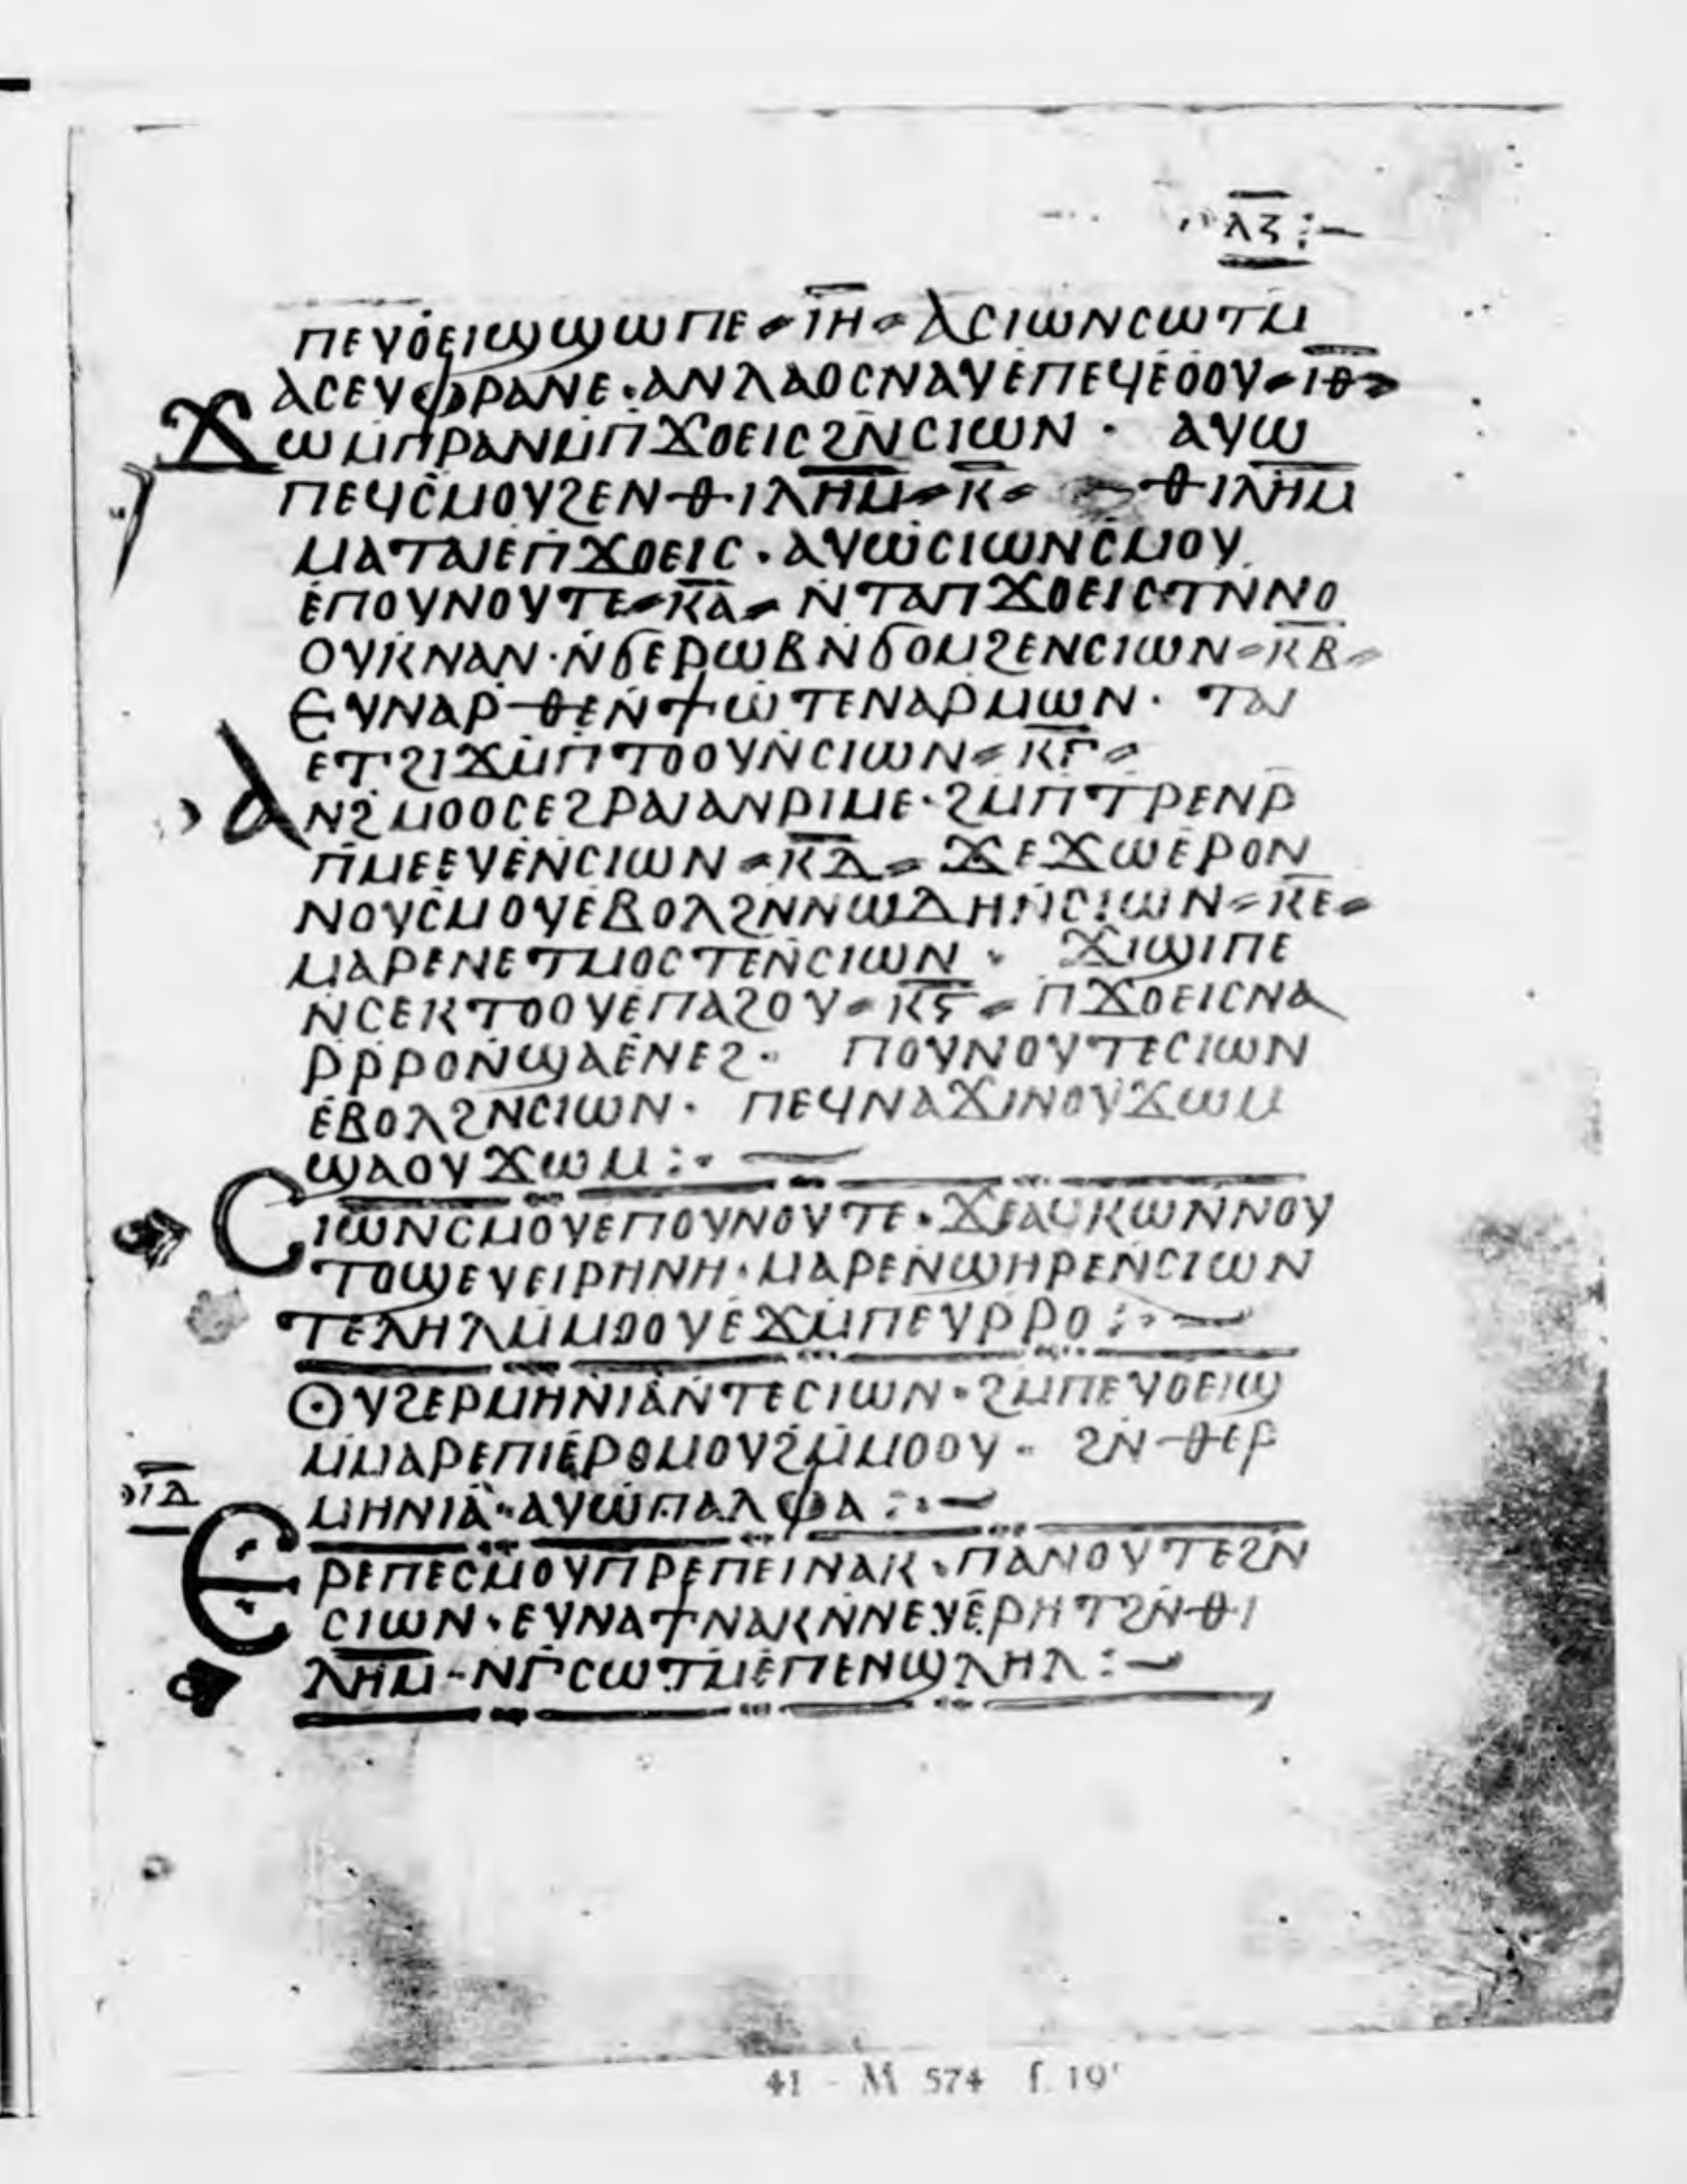 ⲗⲍ̅ :—
ⲡⲉⲩⲟⲉⲓϣϣⲱⲡⲉ ⸗ ⲓ̅ⲏ̅ ⸗ ⲁⲥⲓⲱⲛⲥⲱⲧⲙ
ⲁⲥⲉⲩⲫⲣⲁⲛⲉ · ⲁⲛⲗⲁⲟⲥⲛⲁⲩⲉⲡⲉϥⲉⲟⲟⲩ ⸗ ⲓ̅ⲑ̅ ⸗
ϫⲱⲙⲡⲣⲁⲛⲙⲡϫⲟⲉⲓⲥϩⲛ̅ⲥⲓⲱⲛ · ⲁⲩⲱ
ⲡⲉϥⲥⲙⲟⲩϩⲉⲛⲑⲓⲗ̅ⲏ̅ⲙ̅ ⸗ ⲕ̅ ⸗ ⲑⲓⲗ̅ⲏ̅ⲙ̅
ⲙⲁⲧⲁⲓⲉⲡϫⲟⲉⲓⲥ · ⲁⲩⲱⲥⲓⲱⲛⲥⲙⲟⲩ
ⲉⲡⲟⲩⲛⲟⲩⲧⲉ ⸗ ⲕ̅ⲁ̅ ⸗ ⲛⲧⲁⲡϫⲟⲉⲓⲥⲧⲛⲛⲟ
ⲟⲩⲕⲛⲁⲛ · ⲛϭⲉⲣⲱⲃⲛϭⲟⲙϩⲉⲛⲥⲓⲱⲛ ⸗ ⲕ̅ⲃ̅ ⸗
ⲉⲩⲛⲁⲣⲑⲉⲛϯⲱⲧⲉⲛⲁⲣⲙⲱⲛ · ⲧⲁⲓ
ⲉⲧϩⲓϫⲙⲡⲧⲟⲟⲩⲛⲥⲓⲱⲛ ⸗ ⲕ̅ⲅ̅ ⸗
ⲁⲛϩⲙⲟⲟⲥⲉϩⲣⲁⲓⲁⲛⲣⲓⲙⲉ · ϩⲙⲡⲧⲣⲉⲛⲣ̅
ⲡⲙⲉⲉⲩⲉⲛⲥⲓⲱⲛ ⸗ ⲕ̅ⲇ̅ ⸗ ϫⲉϫⲱⲉⲣⲟⲛ
ⲛⲟⲩⲥⲙⲟⲩⲉⲃⲟⲗϩⲛⲛⲱⲇⲏⲛⲥⲓⲱⲛ ⸗ ⲕ̅ⲉ̅ ⸗
ⲙⲁⲣⲉⲛⲉⲧⲙⲟⲥⲧⲉⲛⲥⲓⲱⲛ · ϫⲓϣⲓⲡⲉ
ⲛⲥⲉⲕⲧⲟⲟⲩⲉⲡⲁϩⲟⲩ ⸗ ⲕ̅ⲋ̅ ⸗ ⲡϫⲟⲉⲓⲥⲛⲁ
ⲣⲣⲣⲟⲛϣⲁⲉⲛⲉϩ · ⲡⲟⲩⲛⲟⲩⲧⲉⲥⲓⲱⲛ
ⲉⲃⲟⲗϩⲛⲥⲓⲱⲛ · ⲡⲉϥⲛⲁϫⲓⲛⲟⲩϫⲱⲙ
ϣⲁⲟⲩϫⲱⲙ :· —
ⲥⲓⲱⲛⲥⲙⲟⲩⲉⲡⲟⲩⲛⲟⲩⲧⲉ · ϫⲉⲁϥⲕⲱⲛⲛⲟⲩ
ⲧⲟϣⲉⲩⲉⲓⲣⲏⲛⲏ · ⲙⲁⲣⲉⲛϣⲏⲣⲉⲛⲥⲓⲱⲛ
ⲧⲉⲗⲏⲗⲙⲙⲟⲟⲩⲉϫⲙⲡⲉⲩⲣⲣⲟ :· —
ⲑⲩϩⲉⲣⲙⲏⲛⲓⲁⲛⲧⲉⲥⲓⲱⲛ · ϩⲙⲡⲉⲩⲟⲉⲓϣ
ⲙⲙⲁⲣⲉⲡⲓⲉⲣⲟⲙⲟⲩϩⲙⲙⲟⲟⲩ · ϩⲛⲑⲉⲣ
ⲙⲏⲛⲓⲁ · ⲁⲩⲱⲡⲁⲗⲫⲁ :· —
ⲓ̅ⲇ̅
ⲉⲣⲉⲡⲉⲥⲙⲟⲩⲡⲣⲉⲡⲉⲓⲛⲁⲕ · ⲡⲁⲛⲟⲩⲧⲉϩⲛ
ⲥⲓⲱⲛ · ⲉⲩⲛⲁϯⲛⲁⲕⲛⲛⲉⲩⲉⲣⲏⲧϩⲛⲑⲓ
ⲗ̅ⲏ̅ⲙ̅ - ⲛⲅⲥⲱⲧⲙⲉⲡⲉⲛϣⲗⲏⲗ :—
41 - M 574 f. 19'